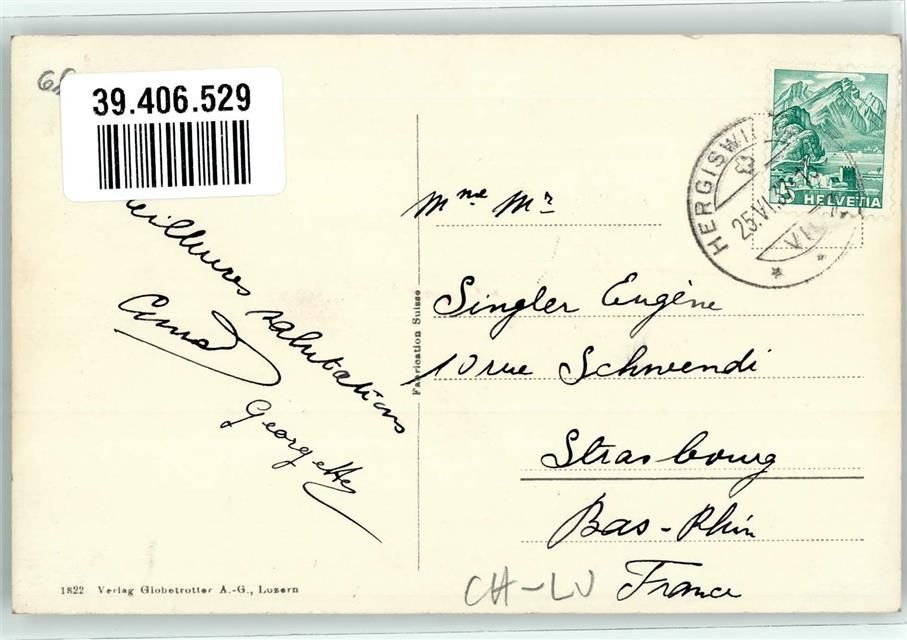 39.406.529
eilleures salutations
Georgette
Fabrication Suisse
1822 Verlag Globetrotter A.-G., Luzern
HERGISWIL
25.VI.3
HELVETIA
Mme Mr
Singler Eugène
10 rue Schwendi
Strasbourg
Bas-Rhin
France
CH-LU